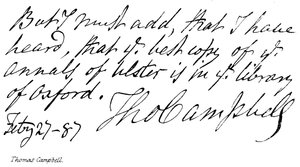 But I must add, that I have
heard, that ye. best copy of ye.
annals of Ulster is in ye. library
of Oxford. Tho Campbell
Feby 27-87
Thomas Campbell.